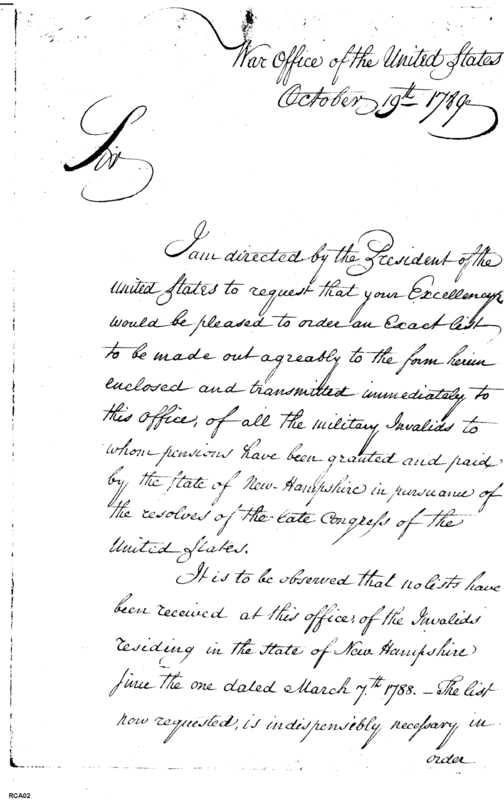 War Office of the United States
October 19th 1789
Sir
I am directed by the President of the
United States to request that your Excellency
would be pleased to order an Exact list
to be made out agreably to the form herein
enclosed and transmitted immediately to
this office, of all the military Invalids to
whom pensions have been granted and paid
by the State of New-Hampshire in pursuance of
the resolves of the late Congress of the
United States.
It is to be observed that no lists have
been received at this office, of the Invalids
residing in the State of New Hampshire
since the one dated March 7.th 1788. — The list
now requested, is indispensibly necessary in
order
RCA02